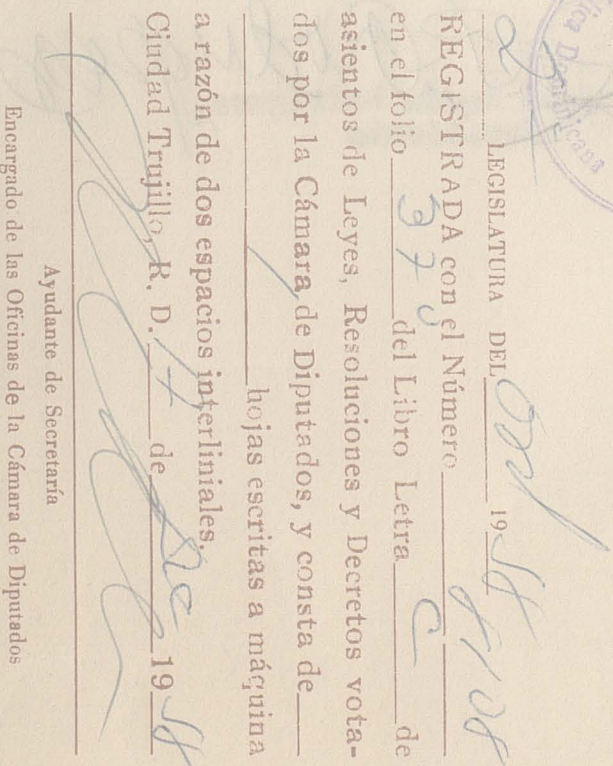 ica Dominicana
2ª LEGISLATURA DEL Ord 1958
REGISTRADA con el Número 8108
en el folio 375 del Libro Letra C de
asientos de Leyes, Resoluciones y Decretos vota-
dos por la Cámara de Diputados, y consta de
1 hojas escritas a máquina
a razón de dos espacios interliniales.
Ciudad Trujillo, R. D. 17 de Dic 1958
Ayudante de Secretaría
Encargado de las Oficinas de la Cámara de Diputados